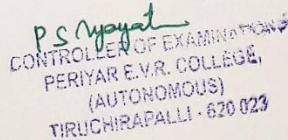 CONTROLLER OF EXAMINATIONS
PERIYAR E.V.R. COLLEGE,
(AUTONOMOUS)
TIRUCHIRAPALLI - 620 023